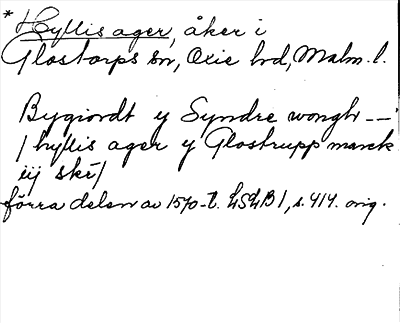 * Hyllis ager, åker i
Glostorps sn, Oxie hd, Malm. l.
Bygiordt y Syndre wongh --
/ hyllis ager y Glostrupp marck
iij ske /
förra delen av 1570-t. LSLB 1, s. 414. orig.